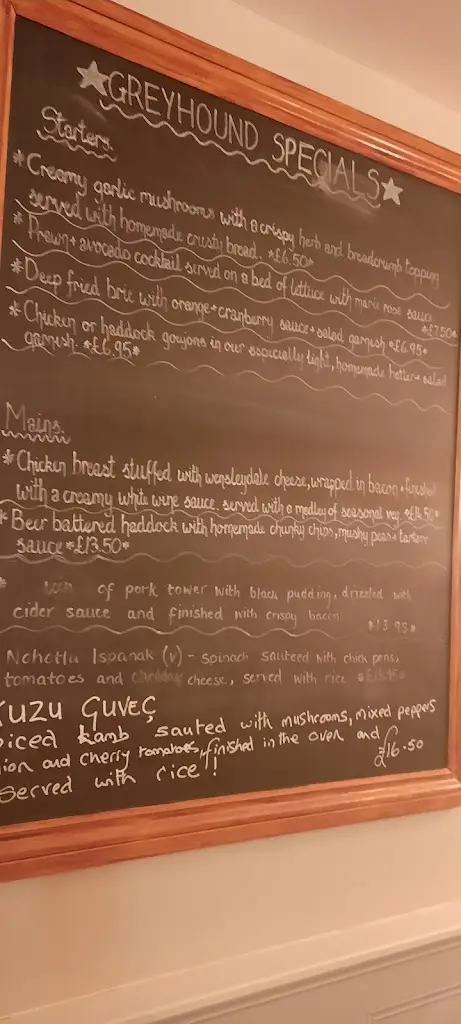 GREYHOUND SPECIALS
Starters.
*Creamy garlic mushrooms with a crispy herb and breadcrumb topping
served with homemade crusty bread. *£6.50*
*Prawn + avocado cocktail served on a bed of lettuce with marie rose sauce
*£7.50*
*Deep fried brie with orange + cranberry sauce + salad garnish *£6.95*
*Chicken or haddock goujons in our especially light, homemade batter + salad
garnish. *£6.95*
Mains.
*Chicken breast stuffed with wensleydale cheese, wrapped in bacon + finished
with a creamy white wine sauce. served with a medley of seasonal veg *£14.50*
*Beer battered haddock with homemade chunky chips, mushy peas + tartare
sauce *£13.50*
* of pork tower with black pudding, drizzled with
cider sauce and finished with crispy bacon *13.95*
Nohotlu Ispanak (v) - spinach sauteed with chick peas,
tomatoes and cheddar cheese, served with rice
KUZU GUVEÇ
piced Lamb sauted with mushrooms, mixed peppers
ion and cherry tomatoes, finished in the oven and
Served with rice! £16.50